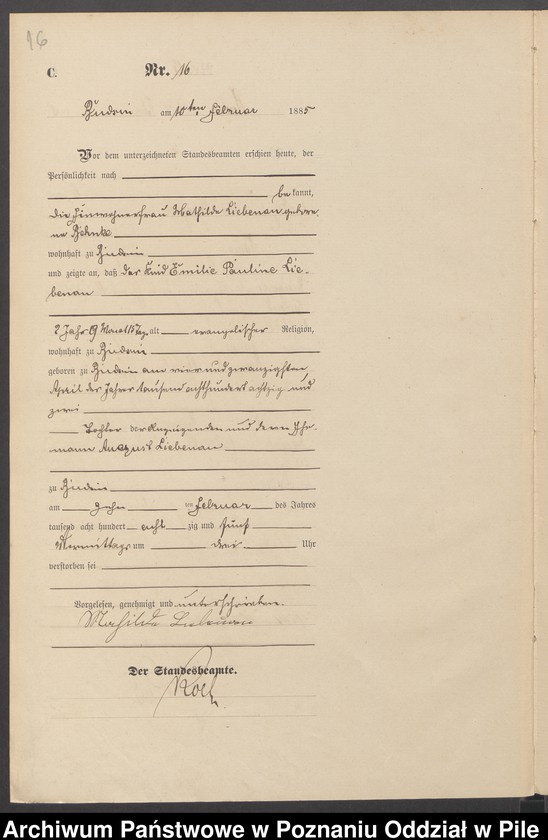 16
C. Nr. 16
am 10ten Februar 1885
Vor dem unterzeichneten Standesbeamten erschien heute, der
Persönlichkeit nach
bekannt,
die Einwohnerfrau Mathilde Liebenau gebore-
ne
wohnhaft zu
und zeigte an, daß das Kind Emilie Pauline Lie-
benau
2 Jahr 9 Monat 15 Tage alt evangelischer Religion,
wohnhaft zu
geboren zu am vierundzwanzigsten
April des Jahres tausend achthundert achtzig und
zwei
Tochter der Anzeigenden und deren Ehe-
mann August Liebenau
zu
am zehn ten Februar des Jahres
tausend acht hundert acht zig und fünf
Vormittags um drei Uhr
verstorben sei
Vorgelesen, genehmigt und unterschrieben.
Mathilde Liebenau
Der Standesbeamte.
Archiwum Państwowe w Poznaniu Oddział w Pile